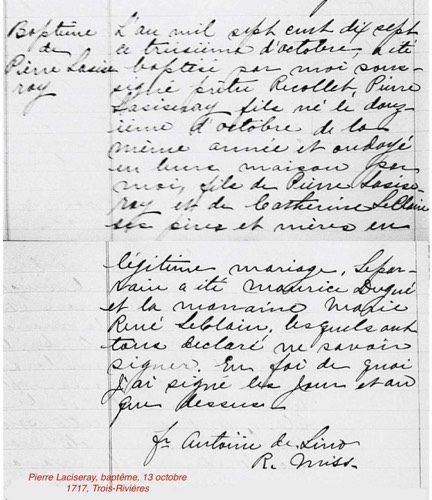 Baptême
de
Pierre Lasise-
ray
L'au mil sept cent dix sept
ce treisième d'octobre, a été
baptisé par moi sous-
signé prêtre Recollet, Pierre
Lasiseray fils né le douz-
ième d'octobre de la
même année et ondoyé
en leurs maison par
moi, fils de Pierre Lasise-
ray et de Catherine LeClaire
ses pères et mères en
légitime mariage. Le par-
rain a été Maurice Dugué
et la marraine Marie
René LeClair, lesquels ont
tous declaré ne savoir
signer. En foi de quoi
J'ai signé les jour et an
que dessus
fr Antoine de Lino
R. Miss.
Pierre Laciseray, baptême, 13 octobre
1717, Trois-Rivières